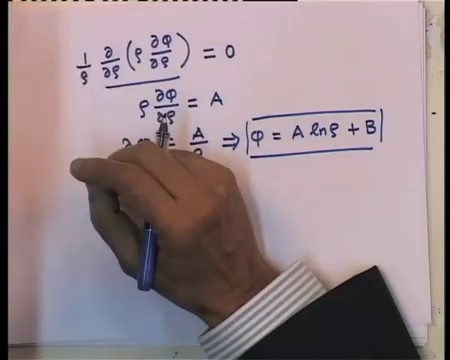 1/ρ ∂/∂ρ (ρ ∂φ/∂ρ) = 0
ρ ∂φ/∂ρ = A
= A/ρ ⇒ φ = A lnρ + B